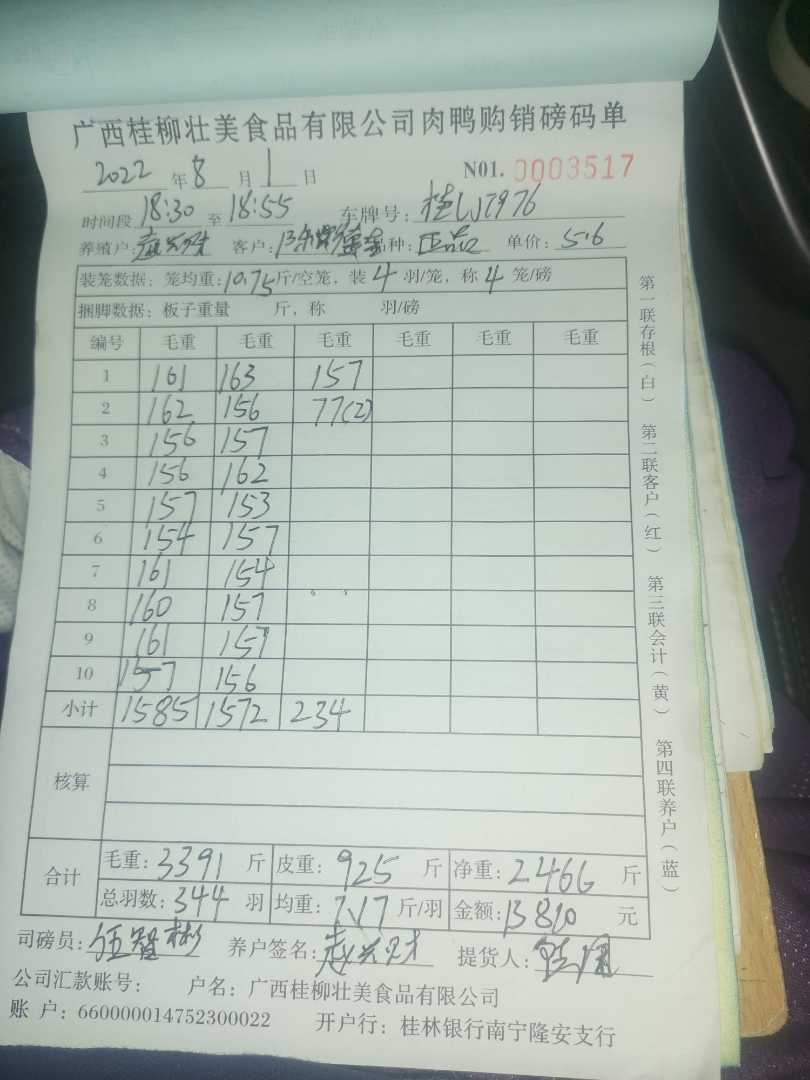 广西桂柳壮美食品有限公司肉鸭购销磅码单
2022 年 8 月 1 日 N01. 0003517
时间段 18:30 至 18:55 车牌号: 桂
养殖户: 客户: 品种: 正品 单价: 5.6
装笼数据: 笼均重: 10.75 斤/空笼, 装 4 羽/笼, 称 4 笼/磅
捆脚数据: 板子重量 斤, 称 羽/磅
编号 毛重 毛重 毛重 毛重 毛重 毛重
1 161 163 157
2 162 156 77(2)
3 156 157
4 156 162
5 157 153
6 154 157
7 161 154
8 160 157
9 161 157
10 157 156
小计 1585 1572 234
核算
合计 毛重: 3391 斤 皮重: 925 斤 净重: 2466 斤
总羽数: 344 羽 均重: 7.17 斤/羽 金额: 13810 元
司磅员: 养户签名: 提货人:
公司汇款账号: 户名: 广西桂柳壮美食品有限公司
账 户: 660000014752300022 开户行: 桂林银行南宁隆安支行
第一联存根(白) 第二联客户(红) 第三联会计(黄) 第四联养户(蓝)